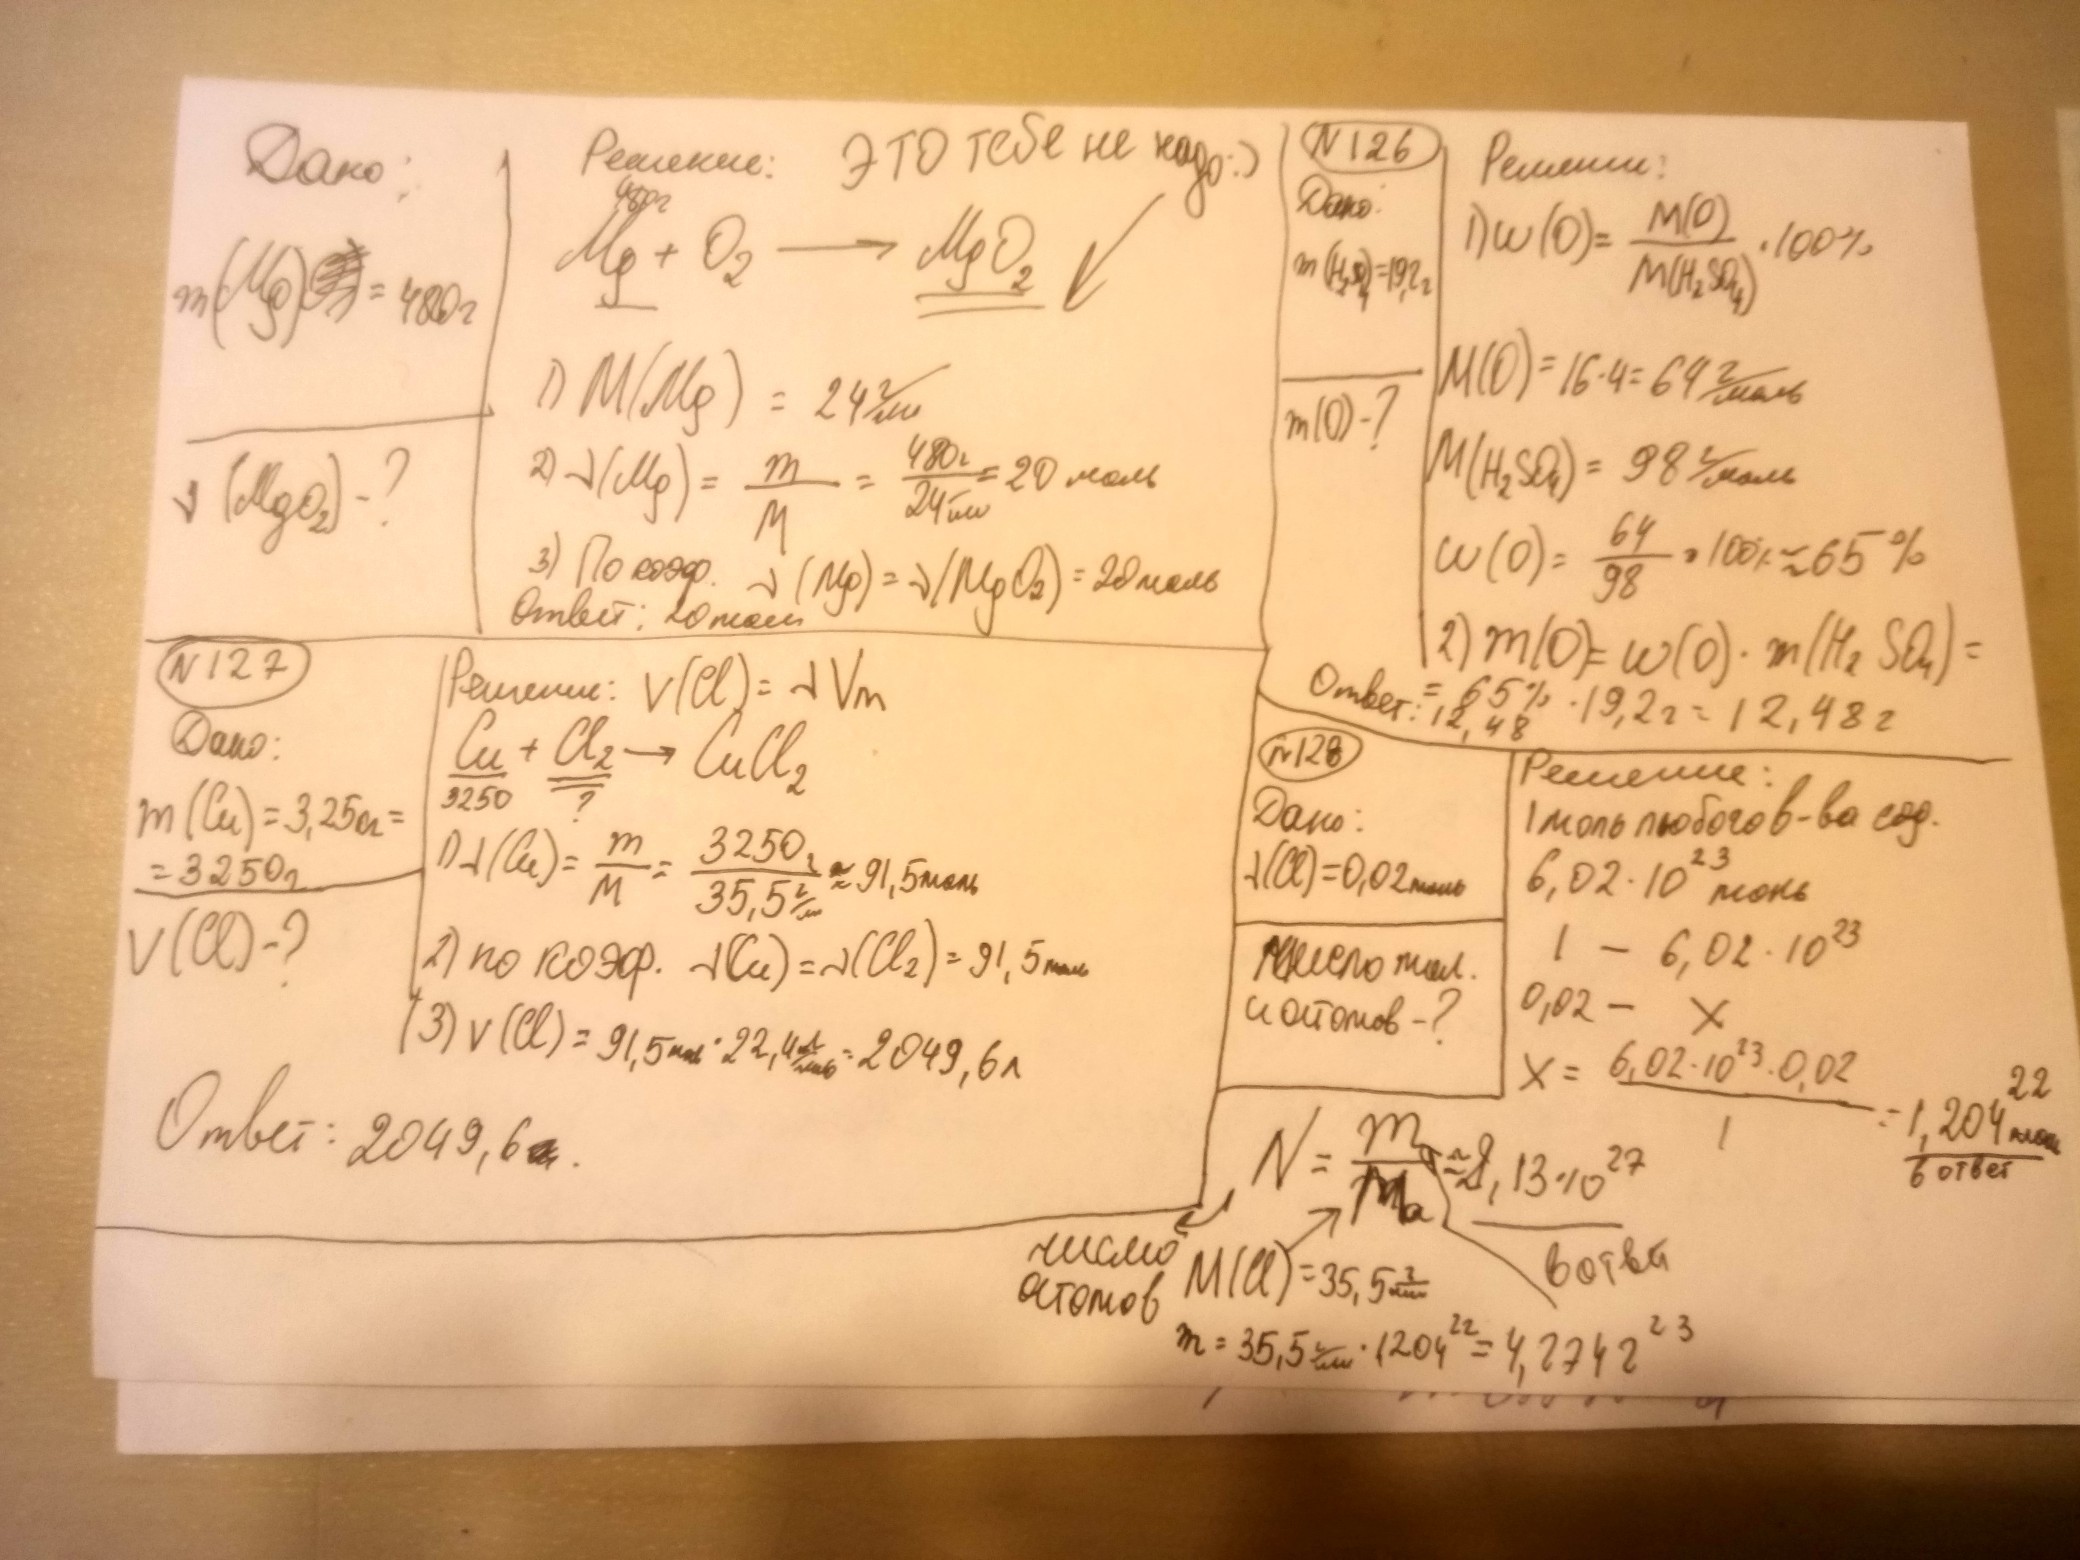 Дано:
m(Mg) = 480г
ν(MgO₂) - ?
Решение: ЭТО ТЕБЕ не надо:)
480г
Mg + O₂ → MgO₂
1) M(Mg) = 24 г/м
2) ν(Mg) = m/M = 480г/24 г/м = 20 моль
3) По коэф. ν(Mg) = ν(MgO₂) = 20 моль
Ответ: 20 мол
N126
Дано:
m(H₂SO₄) = 19,2г
m(O) - ?
Решение:
1) w(O) = M(O)/M(H₂SO₄) · 100%
M(O) = 16·4 = 64 г/моль
M(H₂SO₄) = 98 г/моль
w(O) = 64/98 · 100% ≈ 65%
2) m(O) = w(O) · m(H₂SO₄) =
= 65% · 19,2г = 12,48г
Ответ: 12,48
N127
Дано:
m(Cu) = 3,25кг =
= 3250г
V(Cl) - ?
Решение: V(Cl) = νVm
Cu + Cl₂ → CuCl₂
3250 ?
1) ν(Cu) = m/M = 3250г/35,5 г/м ≈ 91,5 моль
2) по коэф. ν(Cu) = ν(Cl₂) = 91,5 моль
3) V(Cl) = 91,5 мол · 22,4 л/моль = 2049,6л
Ответ: 2049,6л.
N128
Дано:
ν(Cl) = 0,02 моль
число мол.
и атомов - ?
Решение:
1 моль любого в-ва сод.
6,02·10²³
1 – 6,02·10²³
0,02 – x
x = 6,02·10²³·0,02/1 = 1,204²²
в ответ
N = m/mₐ ≈ 8,13·10²⁷
в ответ
число
атомов
M(Cl) = 35,5 г/м
m = 35,5 г/м · 1204²² = 4,274г²³